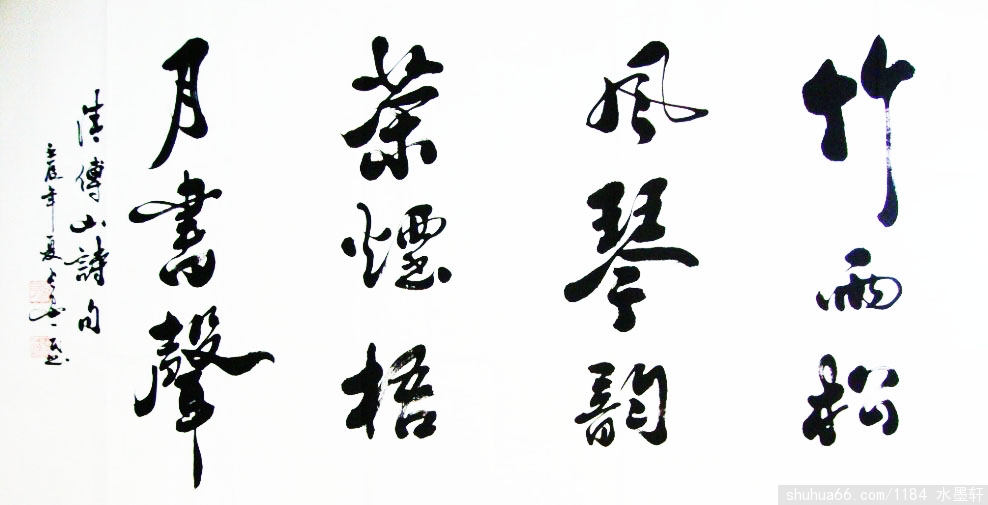 竹雨松
風琴韵
茶煙梧
月書聲
清傅山詩句
壬辰年夏
shuhua66.com/1184 水墨轩